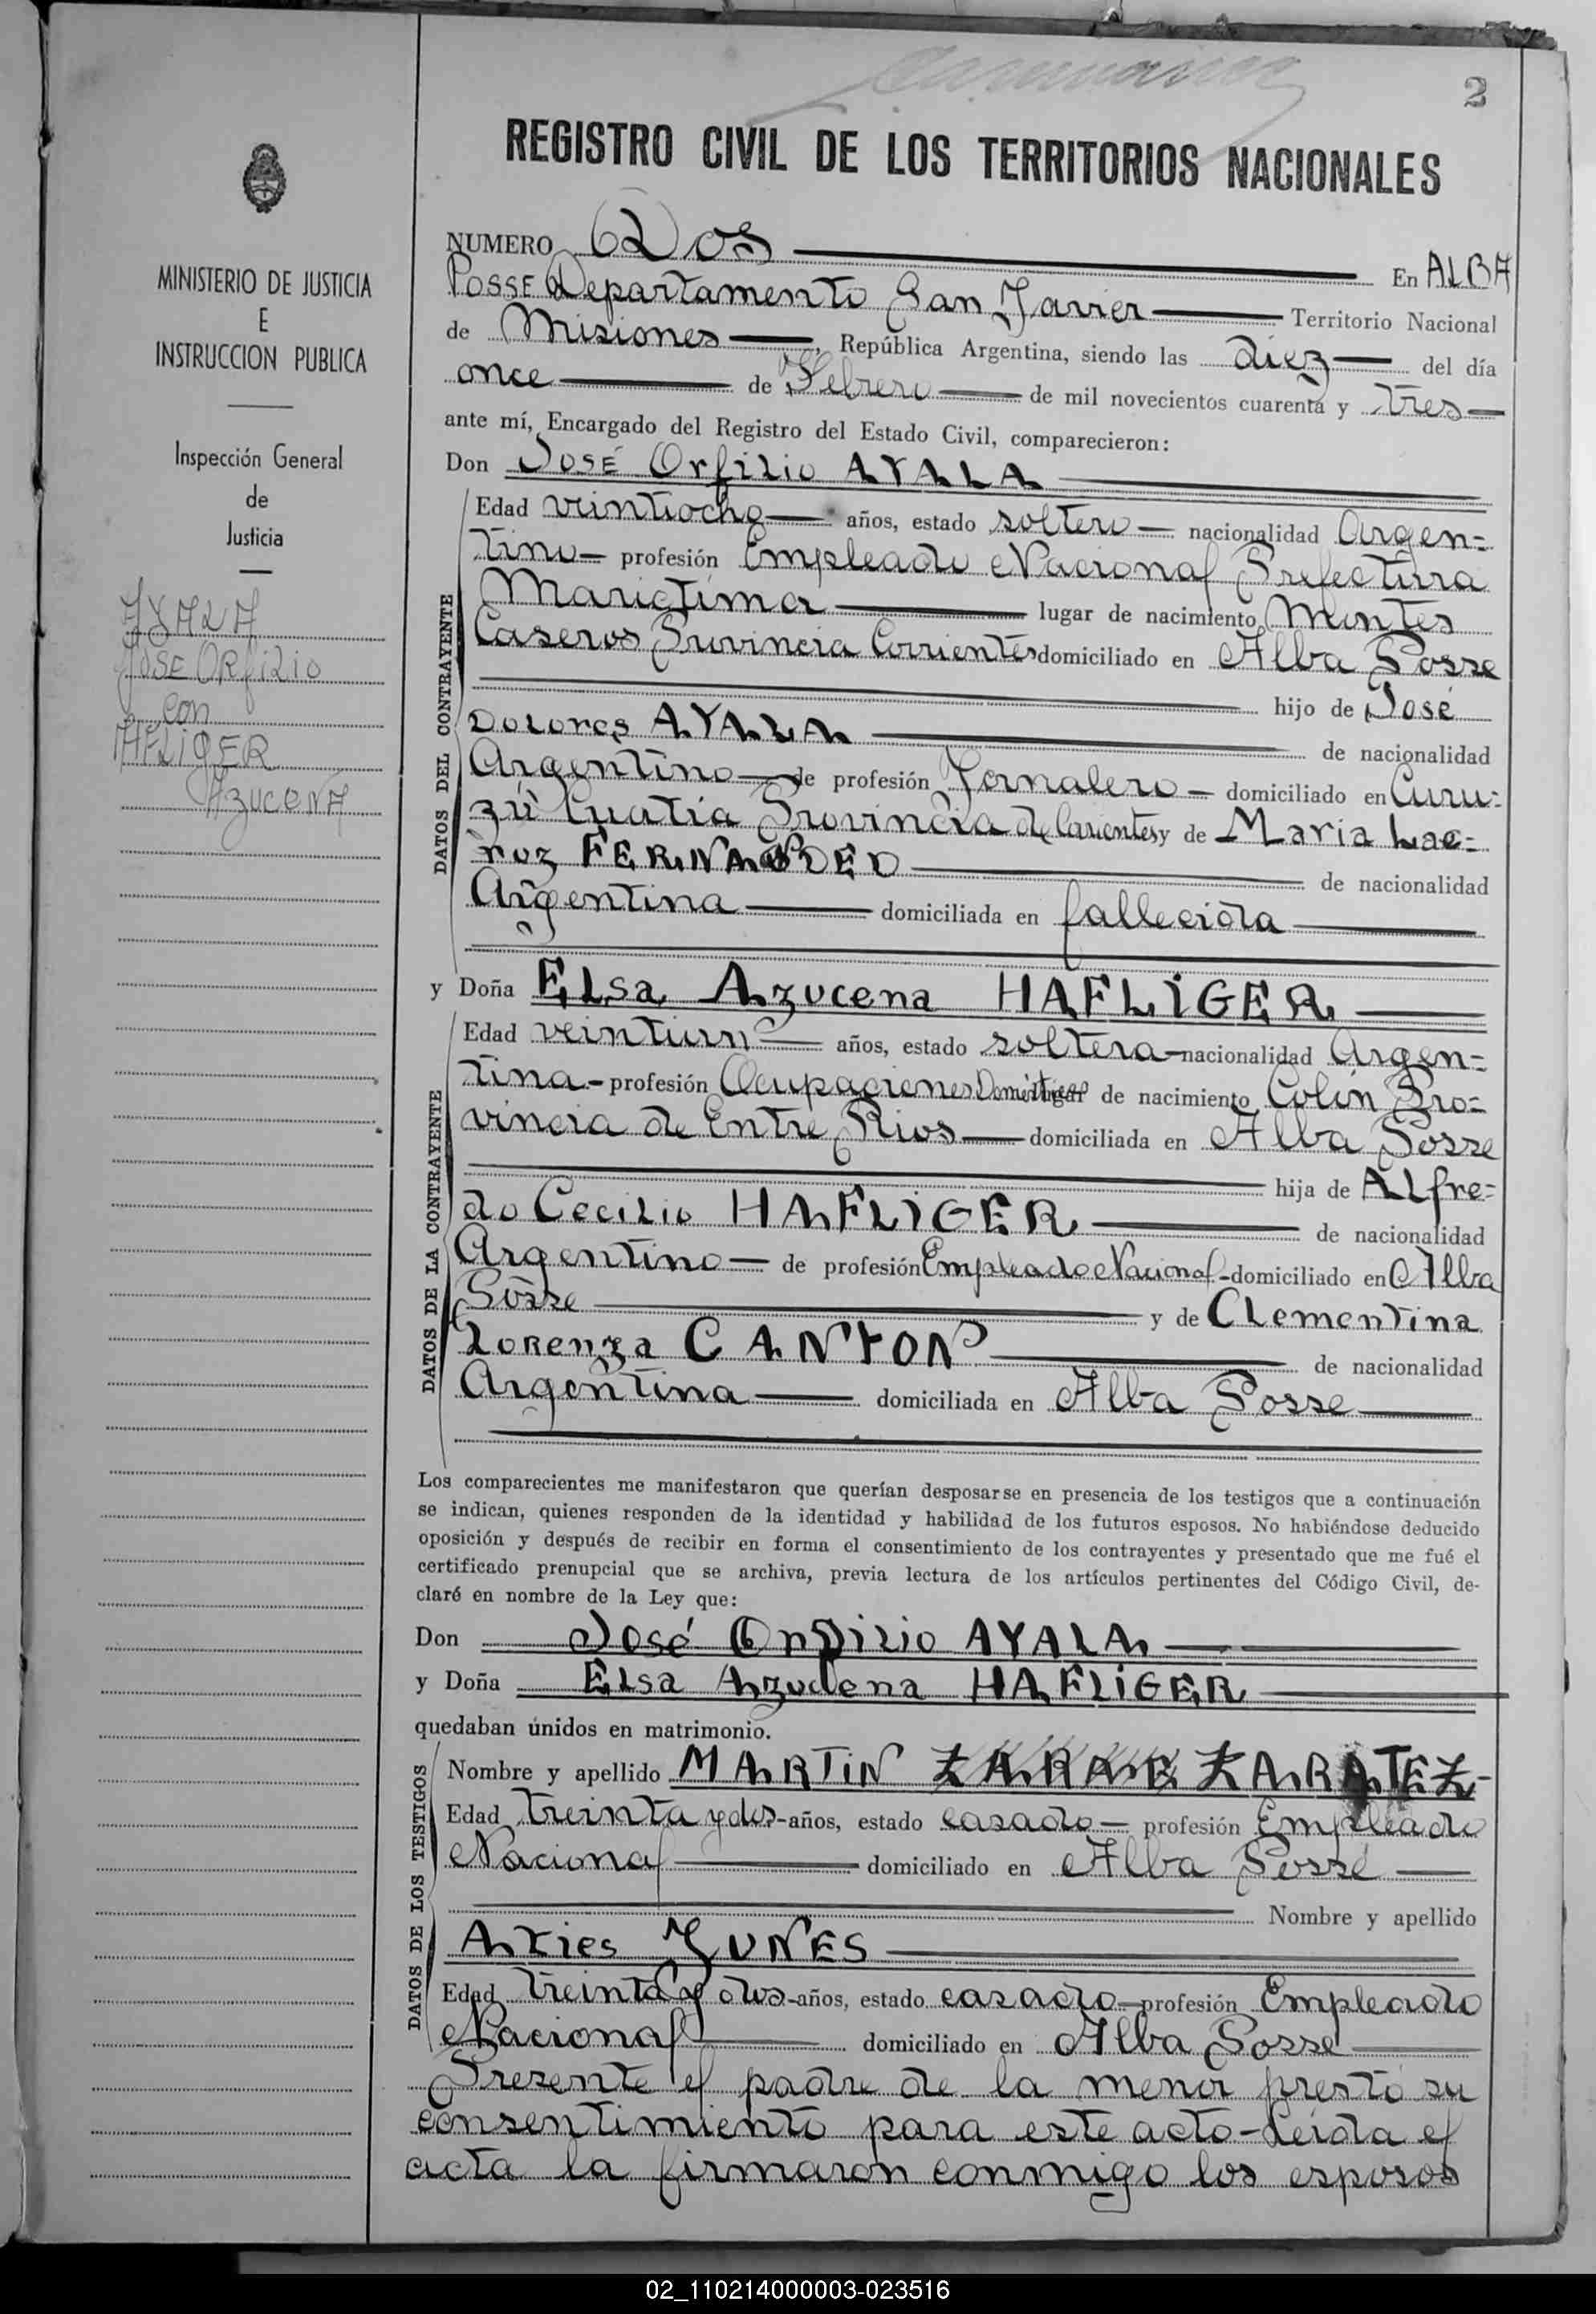 2
REGISTRO CIVIL DE LOS TERRITORIOS NACIONALES
MINISTERIO DE JUSTICIA
E
INSTRUCCION PUBLICA
Inspección General
de
Justicia
AYALA
JOSE ORfiLio
con
HAFLIGER
AZUCENA
NUMERO Dos En ALBA
POSSE Departamento San Javier Territorio Nacional
de Misiones, República Argentina, siendo las diez del día
once de Febrero de mil novecientos cuarenta y tres
ante mí, Encargado del Registro del Estado Civil, comparecieron:
Don José Orfilio AYALA
DATOS DEL CONTRAYENTE
Edad veintiocho años, estado soltero nacionalidad Argen=
tino profesión Empleado Nacional Prefectura
Marictima lugar de nacimiento Montes
Caseros Provincia Corrientes domiciliado en Alba Posse
hijo de José
Dolores AYALA de nacionalidad
Argentino de profesión Jornalero domiciliado en Curu=
zú Cuatia Provincia de Corrientes y de Maria
FERNANDED de nacionalidad
Argentina domiciliada en fallecida
y Doña Elsa Azucena HAFLIGER
DATOS DE LA CONTRAYENTE
Edad veintiun años, estado soltera nacionalidad Argen=
tina profesión Ocupaciones Domésticas lugar de nacimiento Colón Pro=
vincia de Entre Rios domiciliada en Alba Posse
hija de ALfre=
do Cecilio HAFLIGER de nacionalidad
Argentino de profesión Empleado Nacional domiciliado en Alba
Posse y de Clementina
Lorenza CANTON de nacionalidad
Argentina domiciliada en Alba Posse
Los comparecientes me manifestaron que querían desposarse en presencia de los testigos que a continuación
se indican, quienes responden de la identidad y habilidad de los futuros esposos. No habiéndose deducido
oposición y después de recibir en forma el consentimiento de los contrayentes y presentado que me fué el
certificado prenupcial que se archiva, previa lectura de los artículos pertinentes del Código Civil, de-
claré en nombre de la Ley que:
Don José Orfilio AYALA
y Doña Elsa Azucena HAFLIGER
quedaban unidos en matrimonio.
DATOS DE LOS TESTIGOS
Nombre y apellido MARTIN ZARATEZ
Edad treinta y dos años, estado casado profesión Empleado
Nacional domiciliado en Alba Posse
Nombre y apellido
YUNES
Edad treinta y dos años, estado casado profesión Empleado
Nacional domiciliado en Alba Posse
Presente el padre de la menor prestó su
consentimiento para este acto - Leida el
acta la firmaron conmigo los esposos
02_110214000003-023516